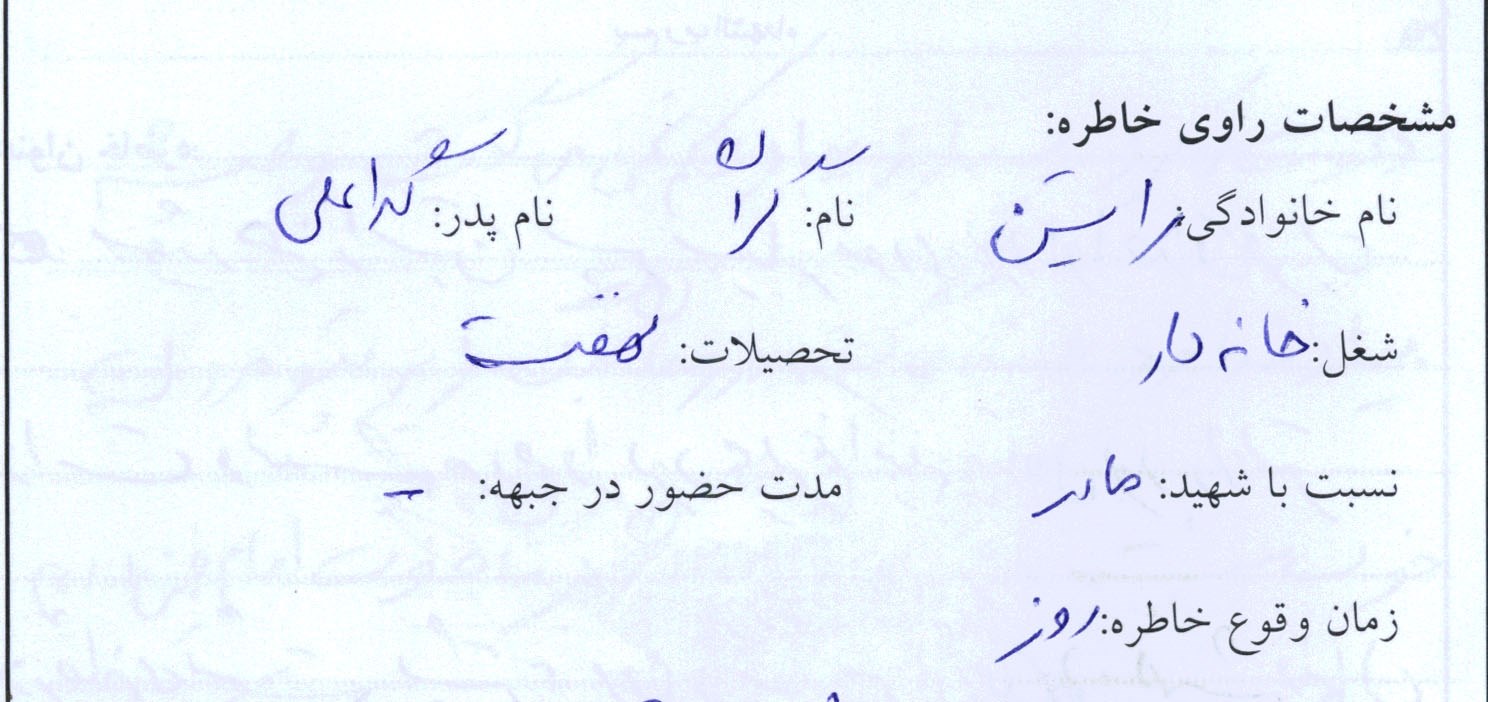 مشخصات راوی خاطره:
نام خانوادگی: نام: نام پدر: گدا علی
شغل: خانه دار تحصیلات: نهضت
نسبت با شهید: مادر مدت حضور در جبهه: -
زمان وقوع خاطره: روز